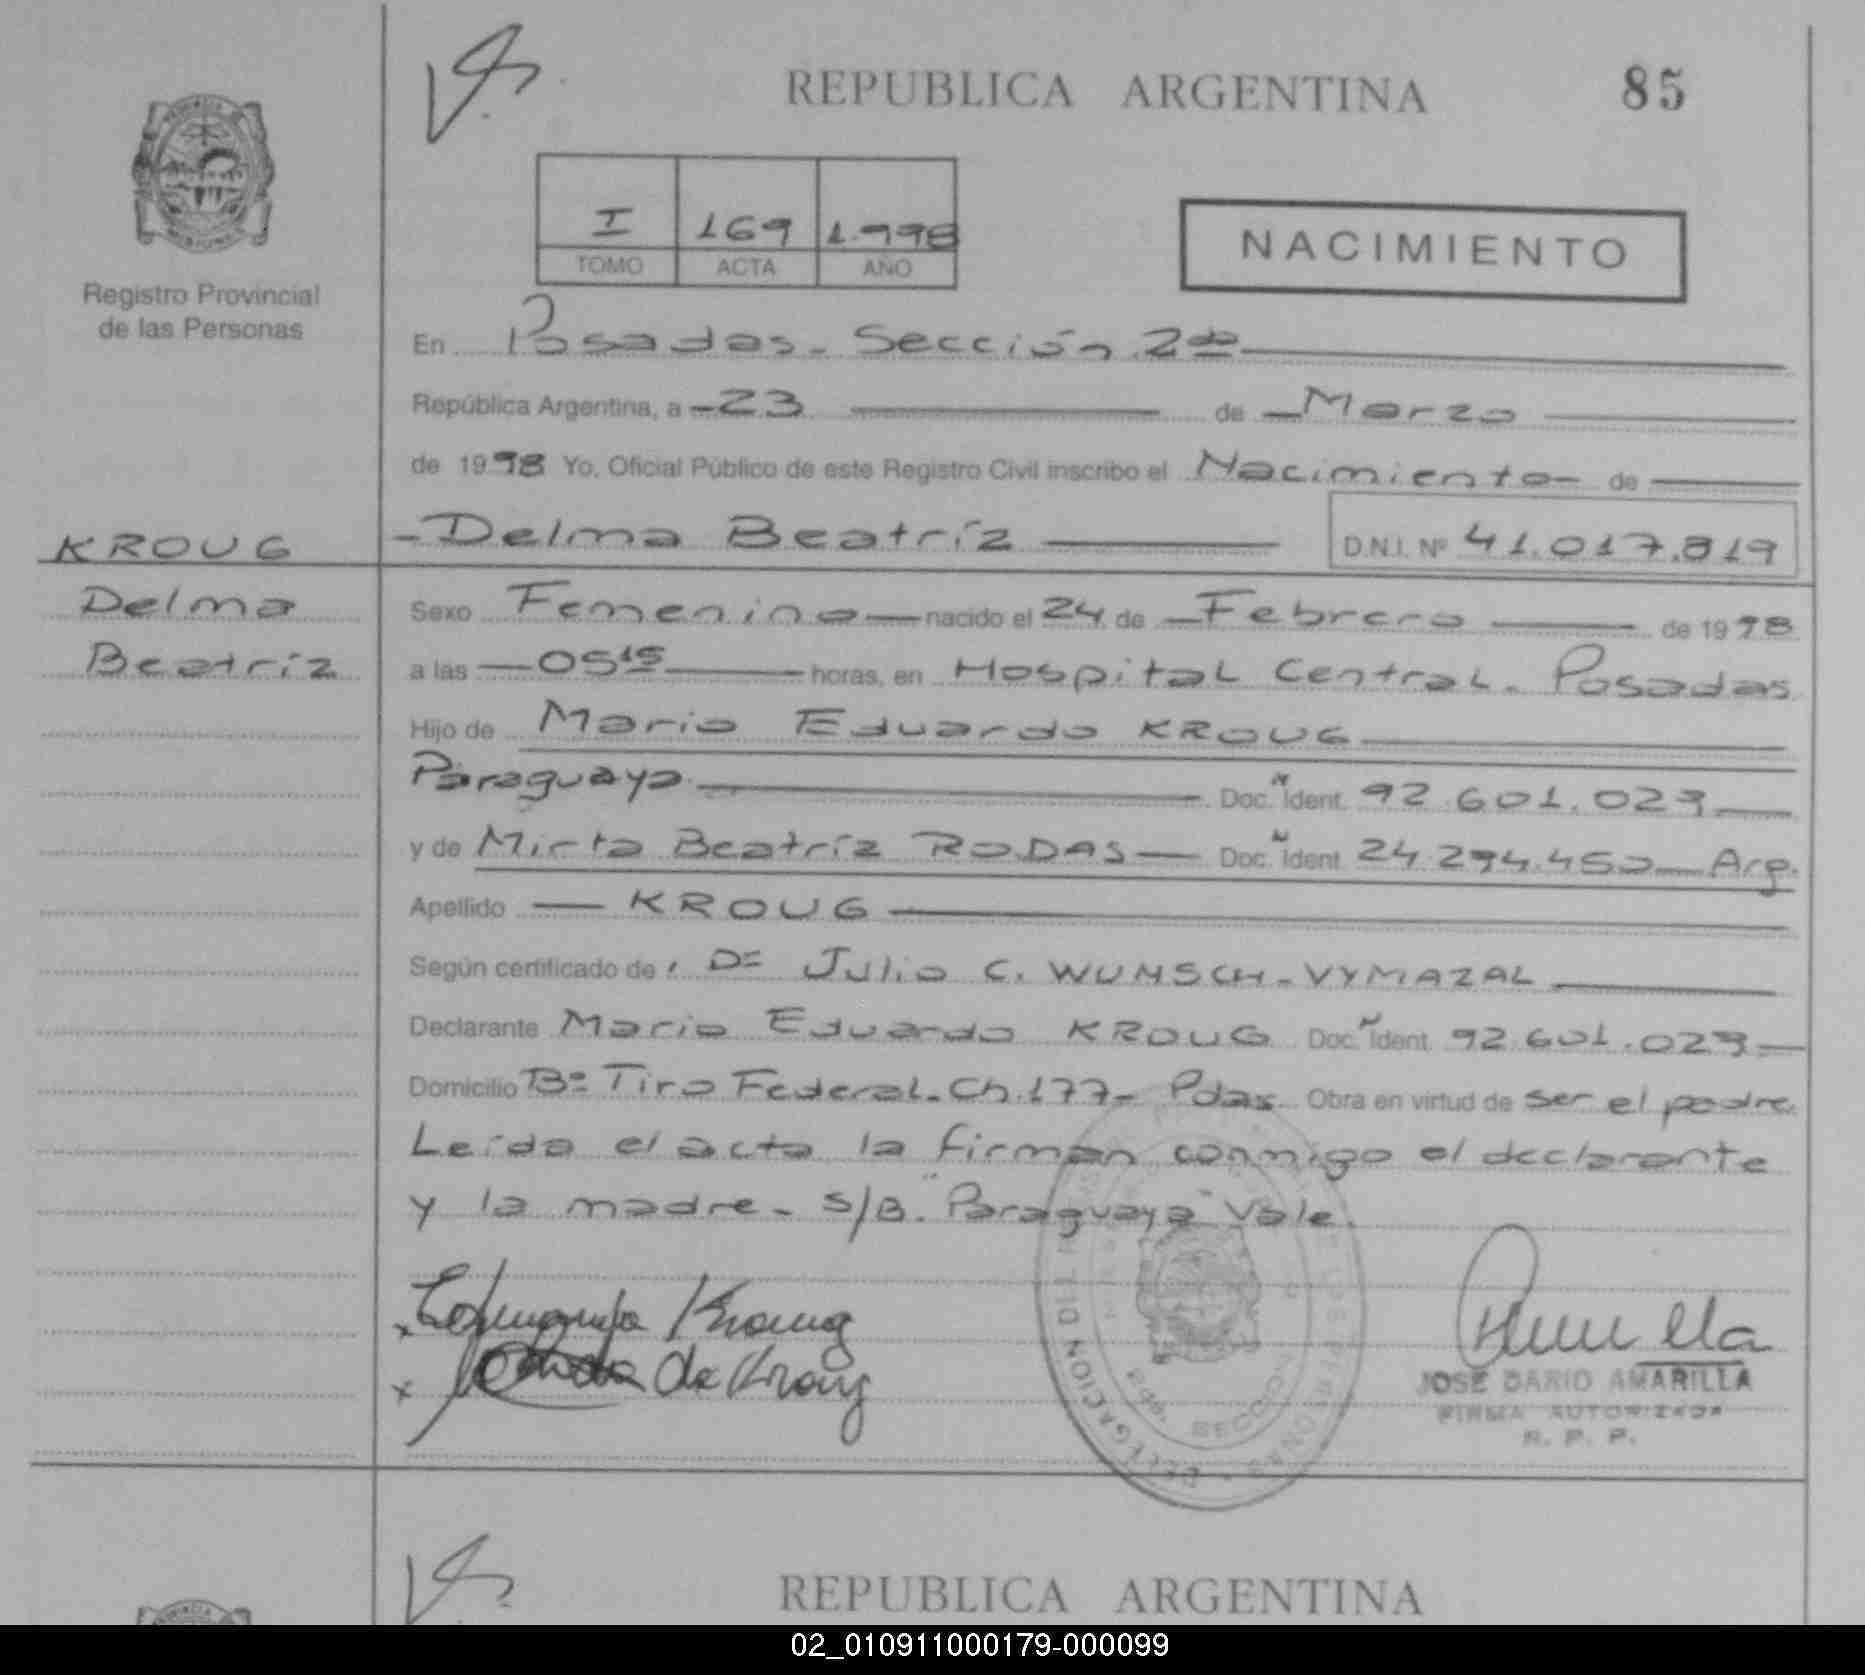 REPUBLICA ARGENTINA 85
I 169 1.998
TOMO ACTA AÑO
NACIMIENTO
Registro Provincial
de las Personas
En Posadas. Sección 2da
República Argentina, a 23 de Marzo
de 1998 Yo, Oficial Público de este Registro Civil inscribo el Nacimiento de
KROUG Delma Beatríz D.N.I. Nº 41.017.819
Delma
Beatríz
Sexo Femenino nacido el 24 de Febrero de 1998
a las 05 15 horas, en Hospital Central. Posadas
Hijo de Mario Eduardo KROUG
Paraguaya Doc. Ident. 92.601.023
y de Mirta Beatríz RODAS Doc. Ident. 24.294.450 Arg.
Apellido KROUG
Según certificado de: Dº Julio C. WUNSCH-VYMAZAL
Declarante Mario Eduardo KROUG Doc. Ident. 92.601.023
Domicilio Bº Tiro Federal. Ch. 177- Pdas. Obra en virtud de ser el padre.
Leída el acta la firman conmigo el declarante
y la madre. S/B. "Paraguaya" Vale.
x Kroug
x de Kroug
DELEGACION DEL
SECCION
JOSE DARIO AMARILLA
FIRMA AUTORIZADA
R. P. P.
REPUBLICA ARGENTINA
02_010911000179-000099